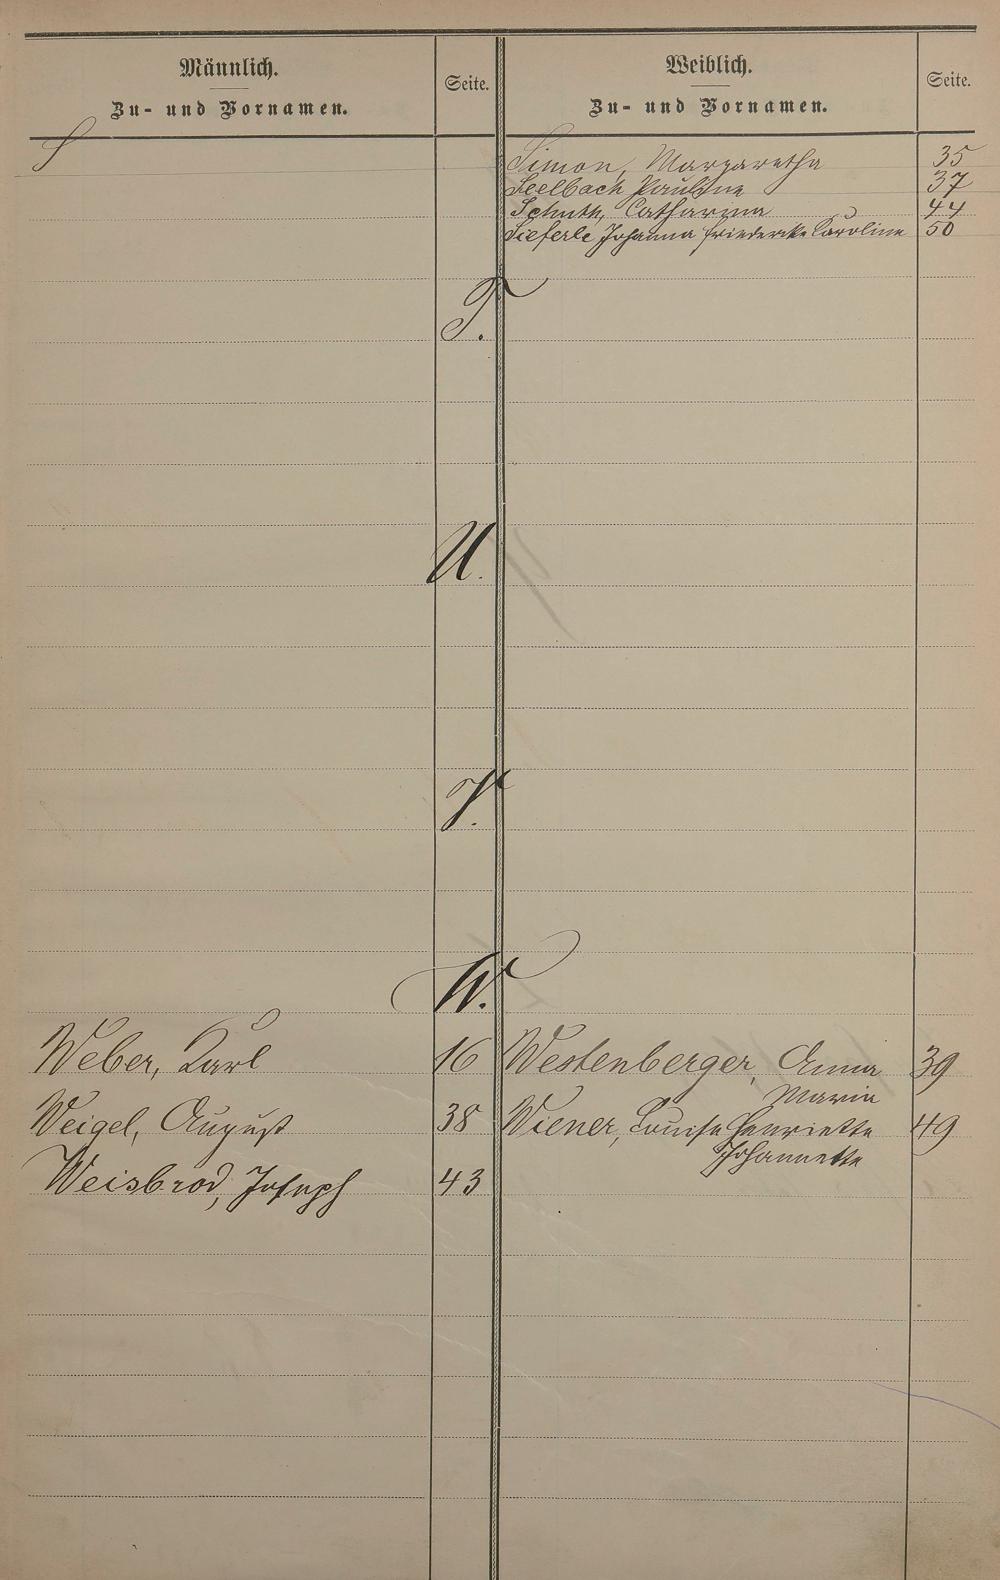 Männlich. Seite. Weiblich. Seite.
Zu- und Vornamen. Zu- und Vornamen.
S Simon, Margaretha 35
Seelbach Pauline 37
Schuth, Catharina 44
Sieferle Johanna Friedericke Caroline 50
T.
U.
V.
W.
Weber, Karl 16 Westenberger, Anna 39
Maria
Weigel, August 38 Wiener, Louise Henriette 49
Johannette
Weisbrod, Joseph 43